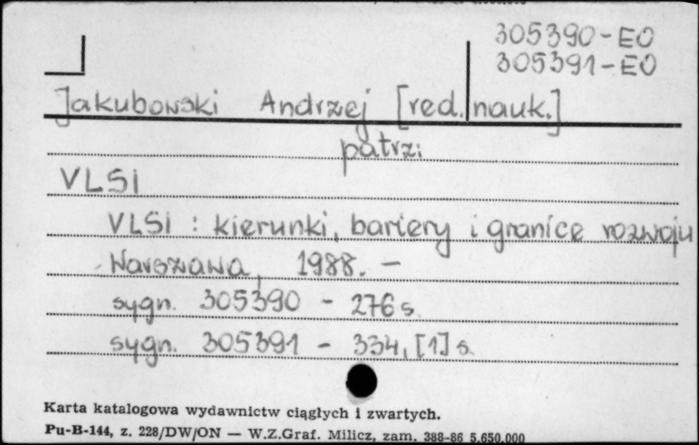 305390-EO
305391-EO
Jakubowski Andrzej [red. nauk.]
patrzi
VLSI
VLSI : kierunki, bariery i granice rozwoju
Warszawa, 1988. –
sygn. 305390 - 276 s.
sygn. 305391 - 334, [1] s.
Karta katalogowa wydawnictw ciągłych i zwartych.
Pu-B-144, z. 228/DW/ON — W.Z.Graf. Milicz, zam. 388-86 5.650.000